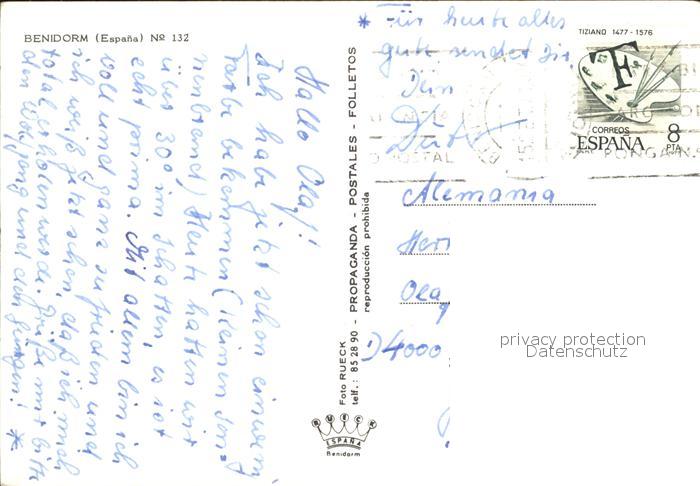 BENIDORM (España) Nº 132
Hallo Olaf!
Ich habe jetzt schon ein wenig
Farbe bekommen (keinen Son-
nenbrand) Heute hatten wir
über 30° im Schatten, es ist
echt prima. Mit allem bin ich
voll und ganz zufrieden und
ich weiß jetzt schon, daß ich mich
total erholen werde. Grüße mir bitte
den und den Jungen! *
* Für heute alles
gute sendet Dir
Foto RUECK
telf.: 85 28 90 - PROPAGANDA - POSTALES - FOLLETOS
reproducción prohibida
RUECK
ESPAÑA
Benidorm
TIZIANO 1477-1576
CORREOS
ESPAÑA
8
PTA
Alemania
Herr
Olaf
D4000
privacy protection
Datenschutz